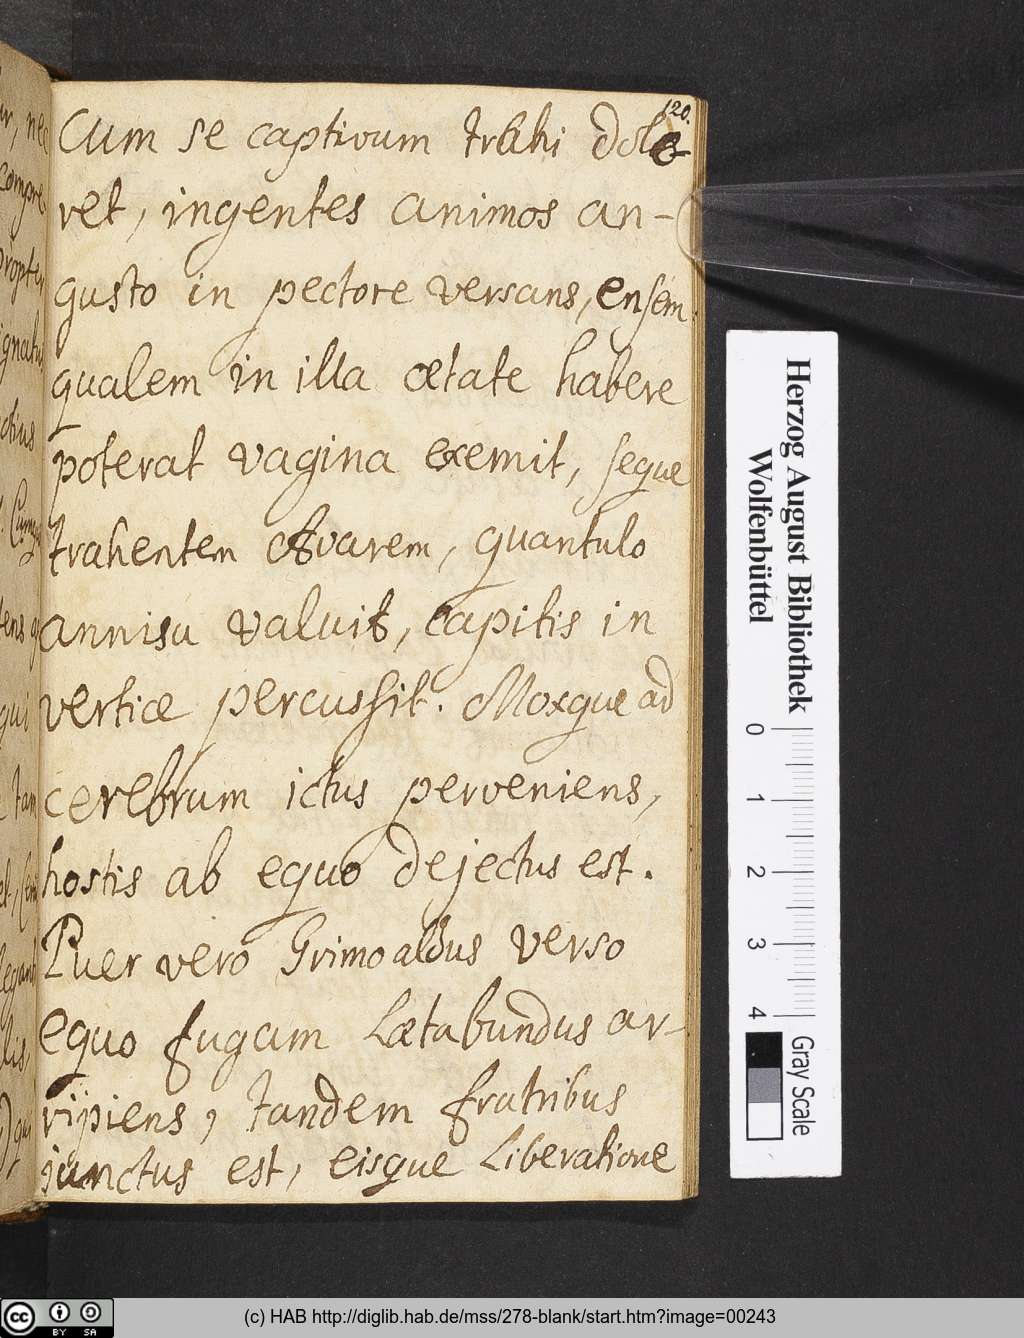 120.
Cum se captivum trahi dole
ret, ingentes animos an-
gusto in pectore versans, ensem
qualem in illa ætate habere
poterat vagina exemit, seque
trahentem Avarem, quantulo
annisu valuit, capitis in
verticæ percussit. Moxque ad
cerebrum ictus perveniens,
hostis ab equo dejectus est.
Puer vero Grimoaldus verso
equo fugam Lætabundus ar-
ripiens, tandem fratribus
junctus est, eisque Liberatione
Herzog August Bibliothek
Wolfenbüttel
0 1 2 3 4
Gray Scale
(c) HAB http://diglib.hab.de/mss/278-blank/start.htm?image=00243
cc BY SA